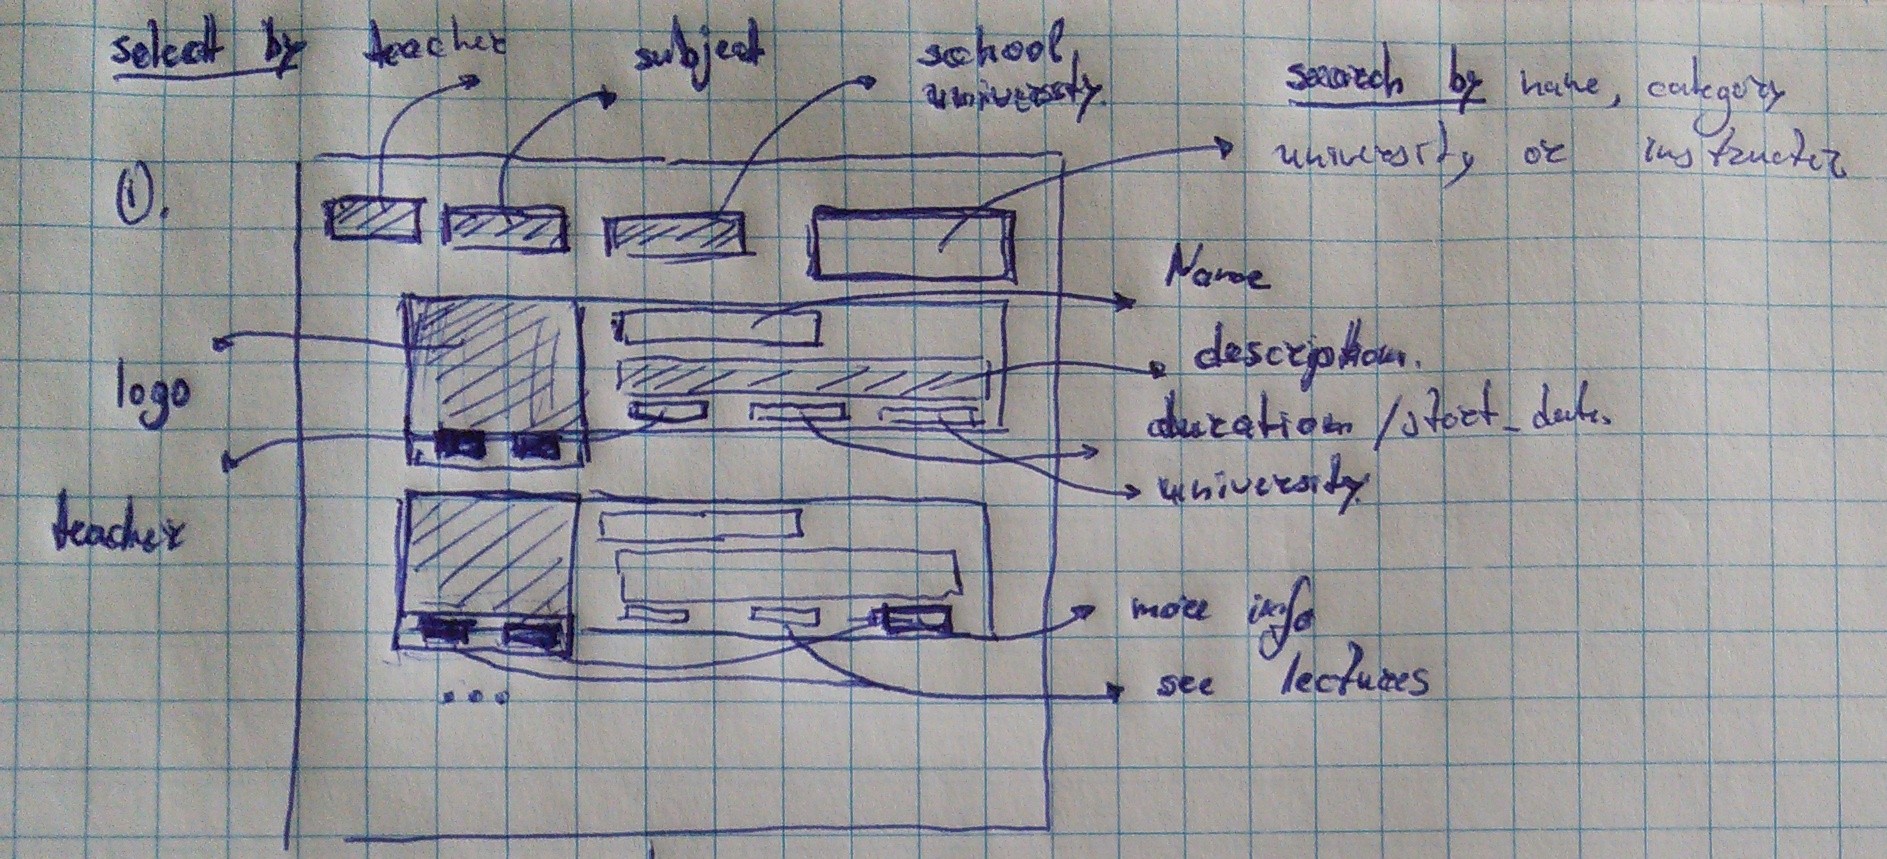 select by teacher subject school,
university.
search by name, category
university or instructor
1.
Name
description.
logo
duration / start_date.
university.
teacher
more info
see lectures
...